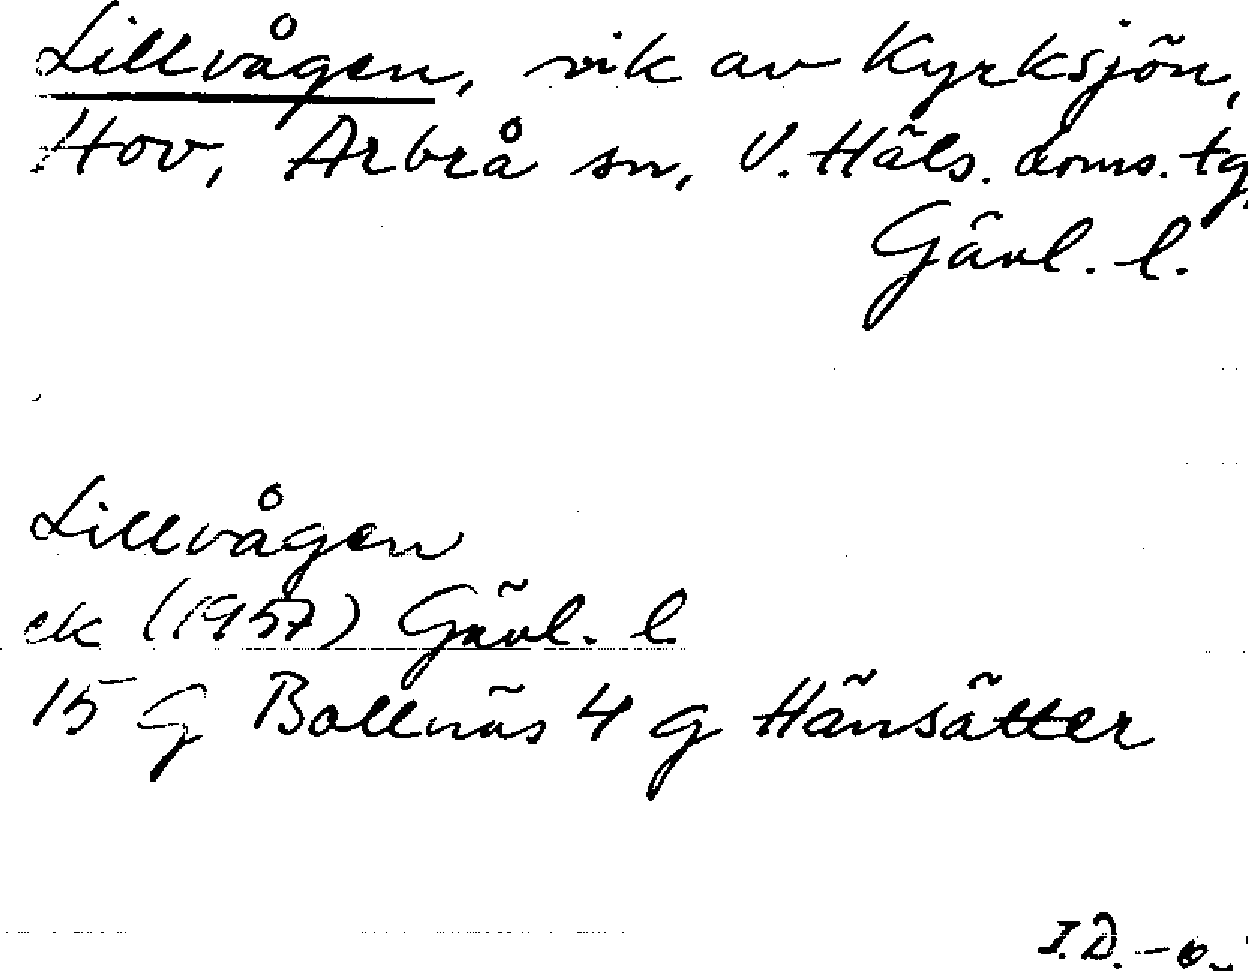 Lillvågen, vik av Kyrksjön,
Hov, Arbrå sn, V. Häls. doms. tg,
Gävl. l.
Lillvågen
ek (1957) Gävl. l
15 G Bollnäs 4 g Hänsätter
I.D.